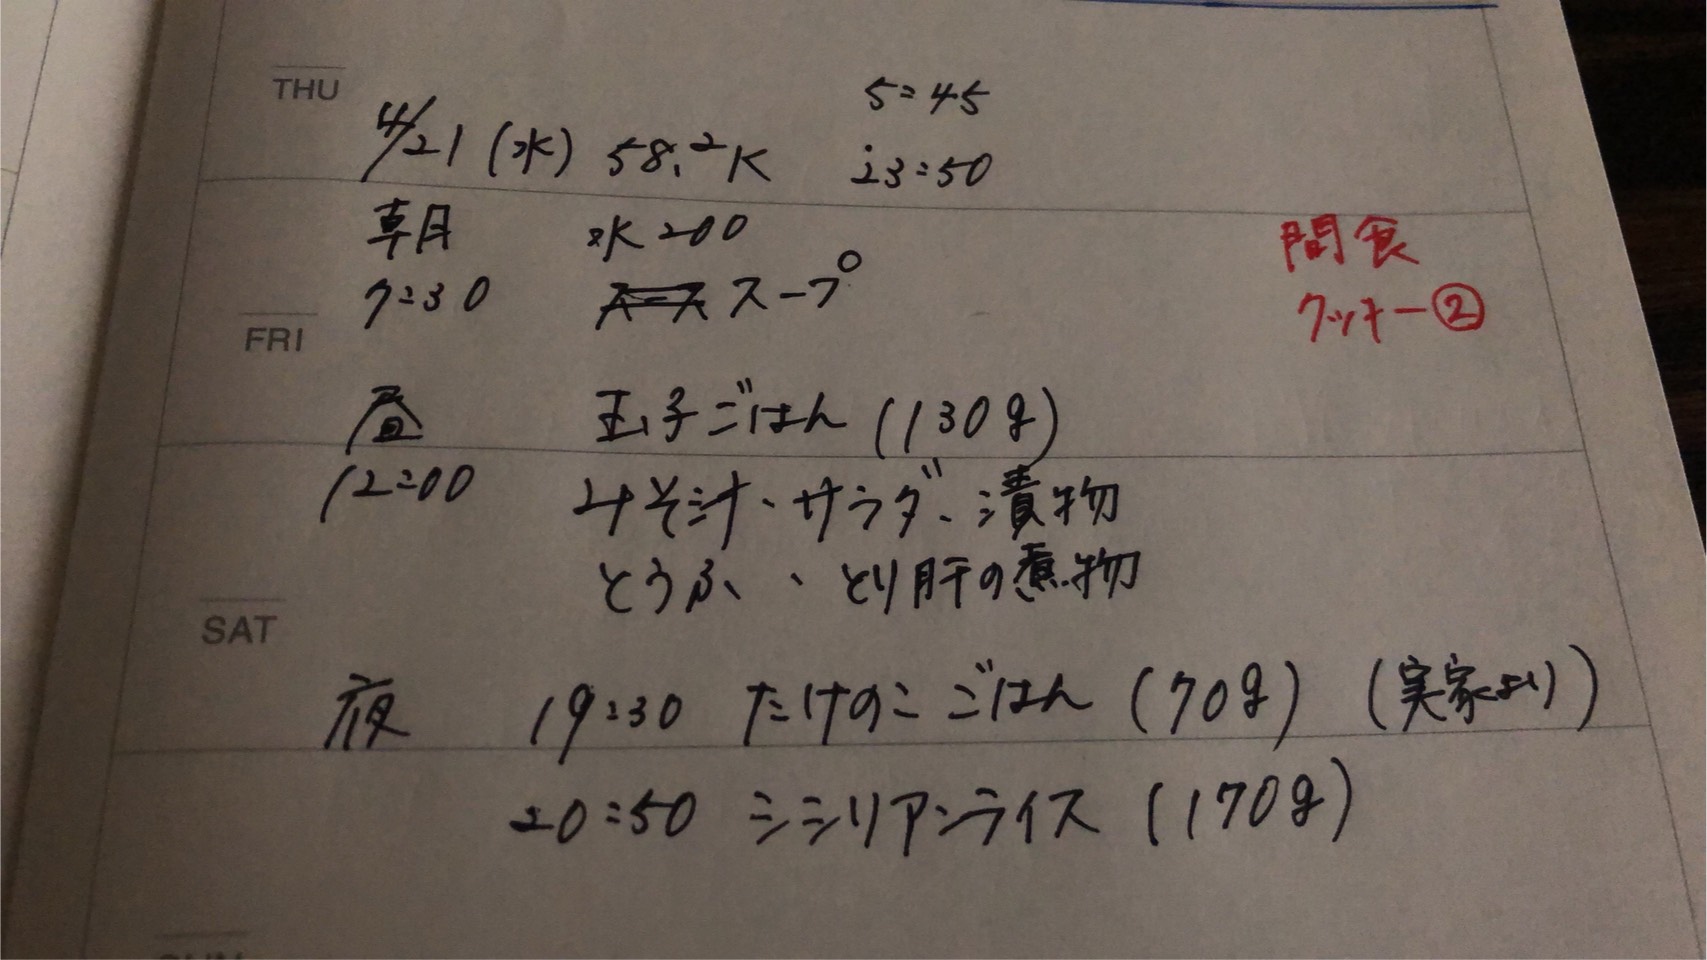 THU
5:45
4/21 (水) 58.2K 23:50
朝 水200
間食
7:30 スープ
クッキー②
FRI
昼 玉子ごはん (130g)
12:00 みそ汁、サラダ、漬物
とうふ、とり肝の煮物
SAT
夜 19:30 たけのこごはん (70g) (実家より)
20:50 シシリアンライス (170g)